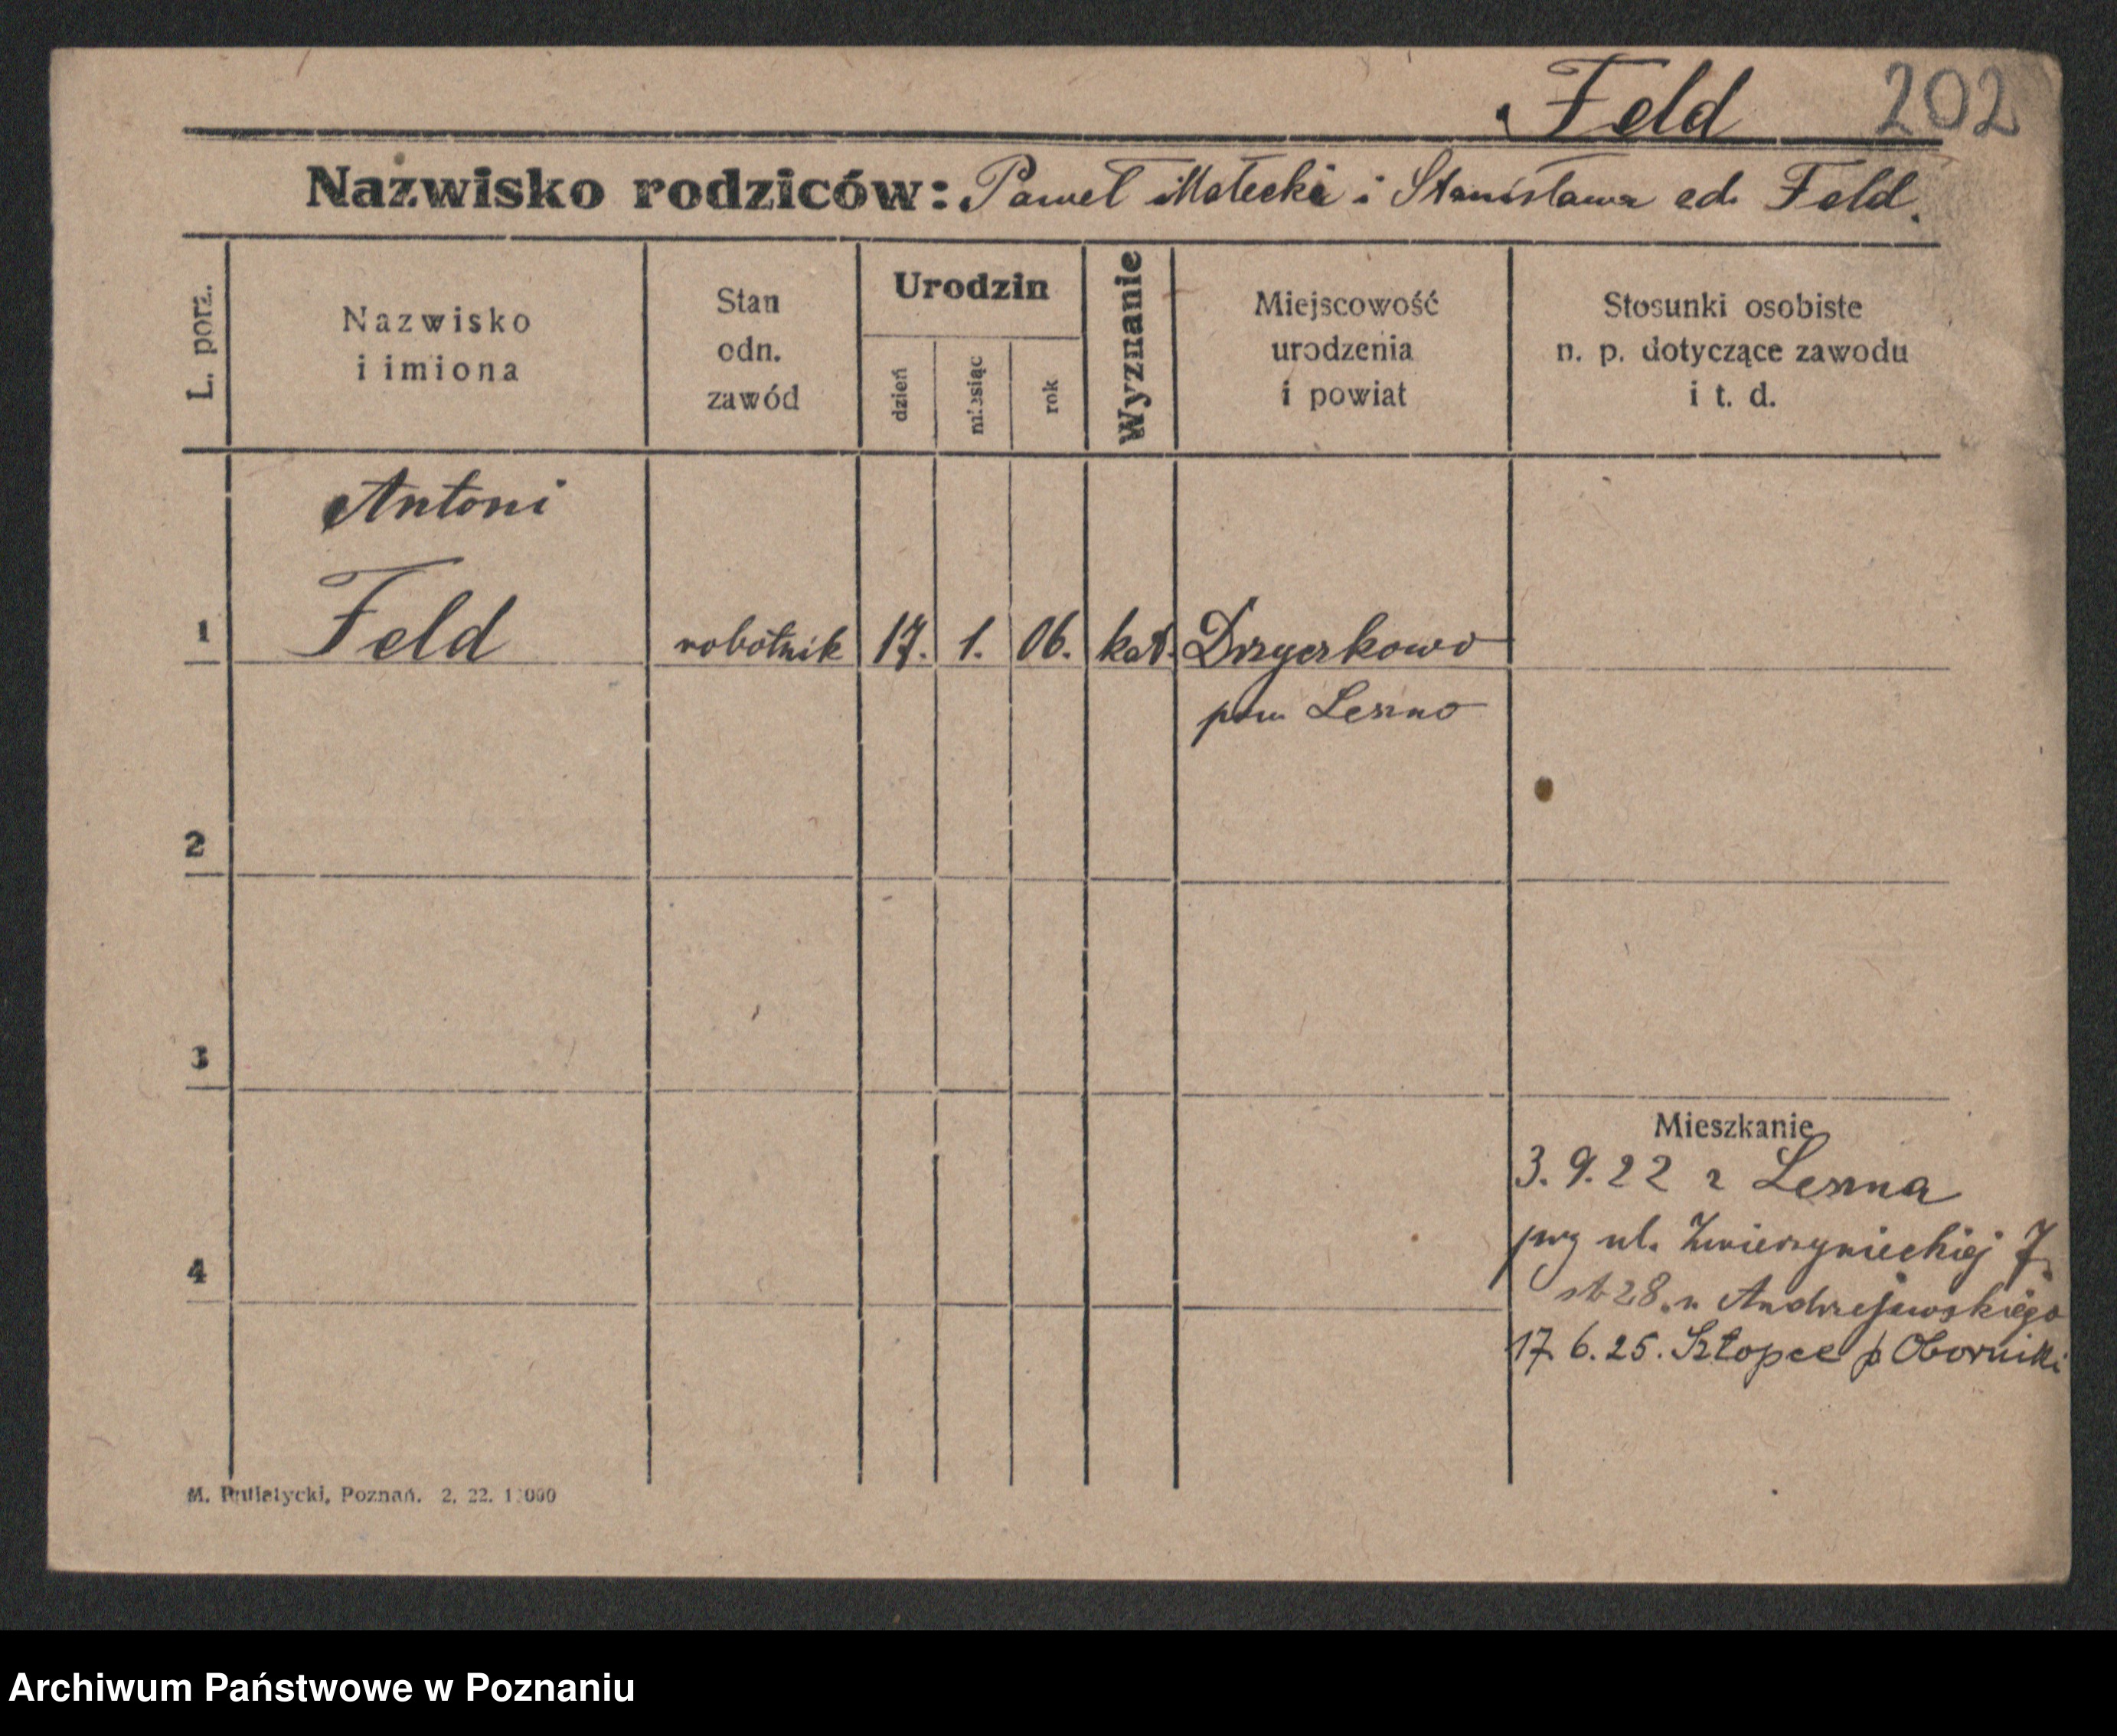 Feld 202
Nazwisko rodziców: Paweł Małecki i Stanisława ed. Feld.
L. porz.
Nazwisko
i imiona
Stan
odn.
zawód
Urodzin
dzień
miesiąc
rok
Wyznanie
Miejscowość
urodzenia
i powiat
Stosunki osobiste
n. p. dotyczące zawodu
i t. d.
Antoni
1 Feld robotnik 17. 1. 06. kat.
pow Leszno
2
3
Mieszkanie
3. 9. 22 z Leszna
ul. Zwierzynieckiej 7
28. u Andrzejewskiego
4
17. 6. 25. p Oborniki
M. Poznań. 2. 22.
Archiwum Państwowe w Poznaniu